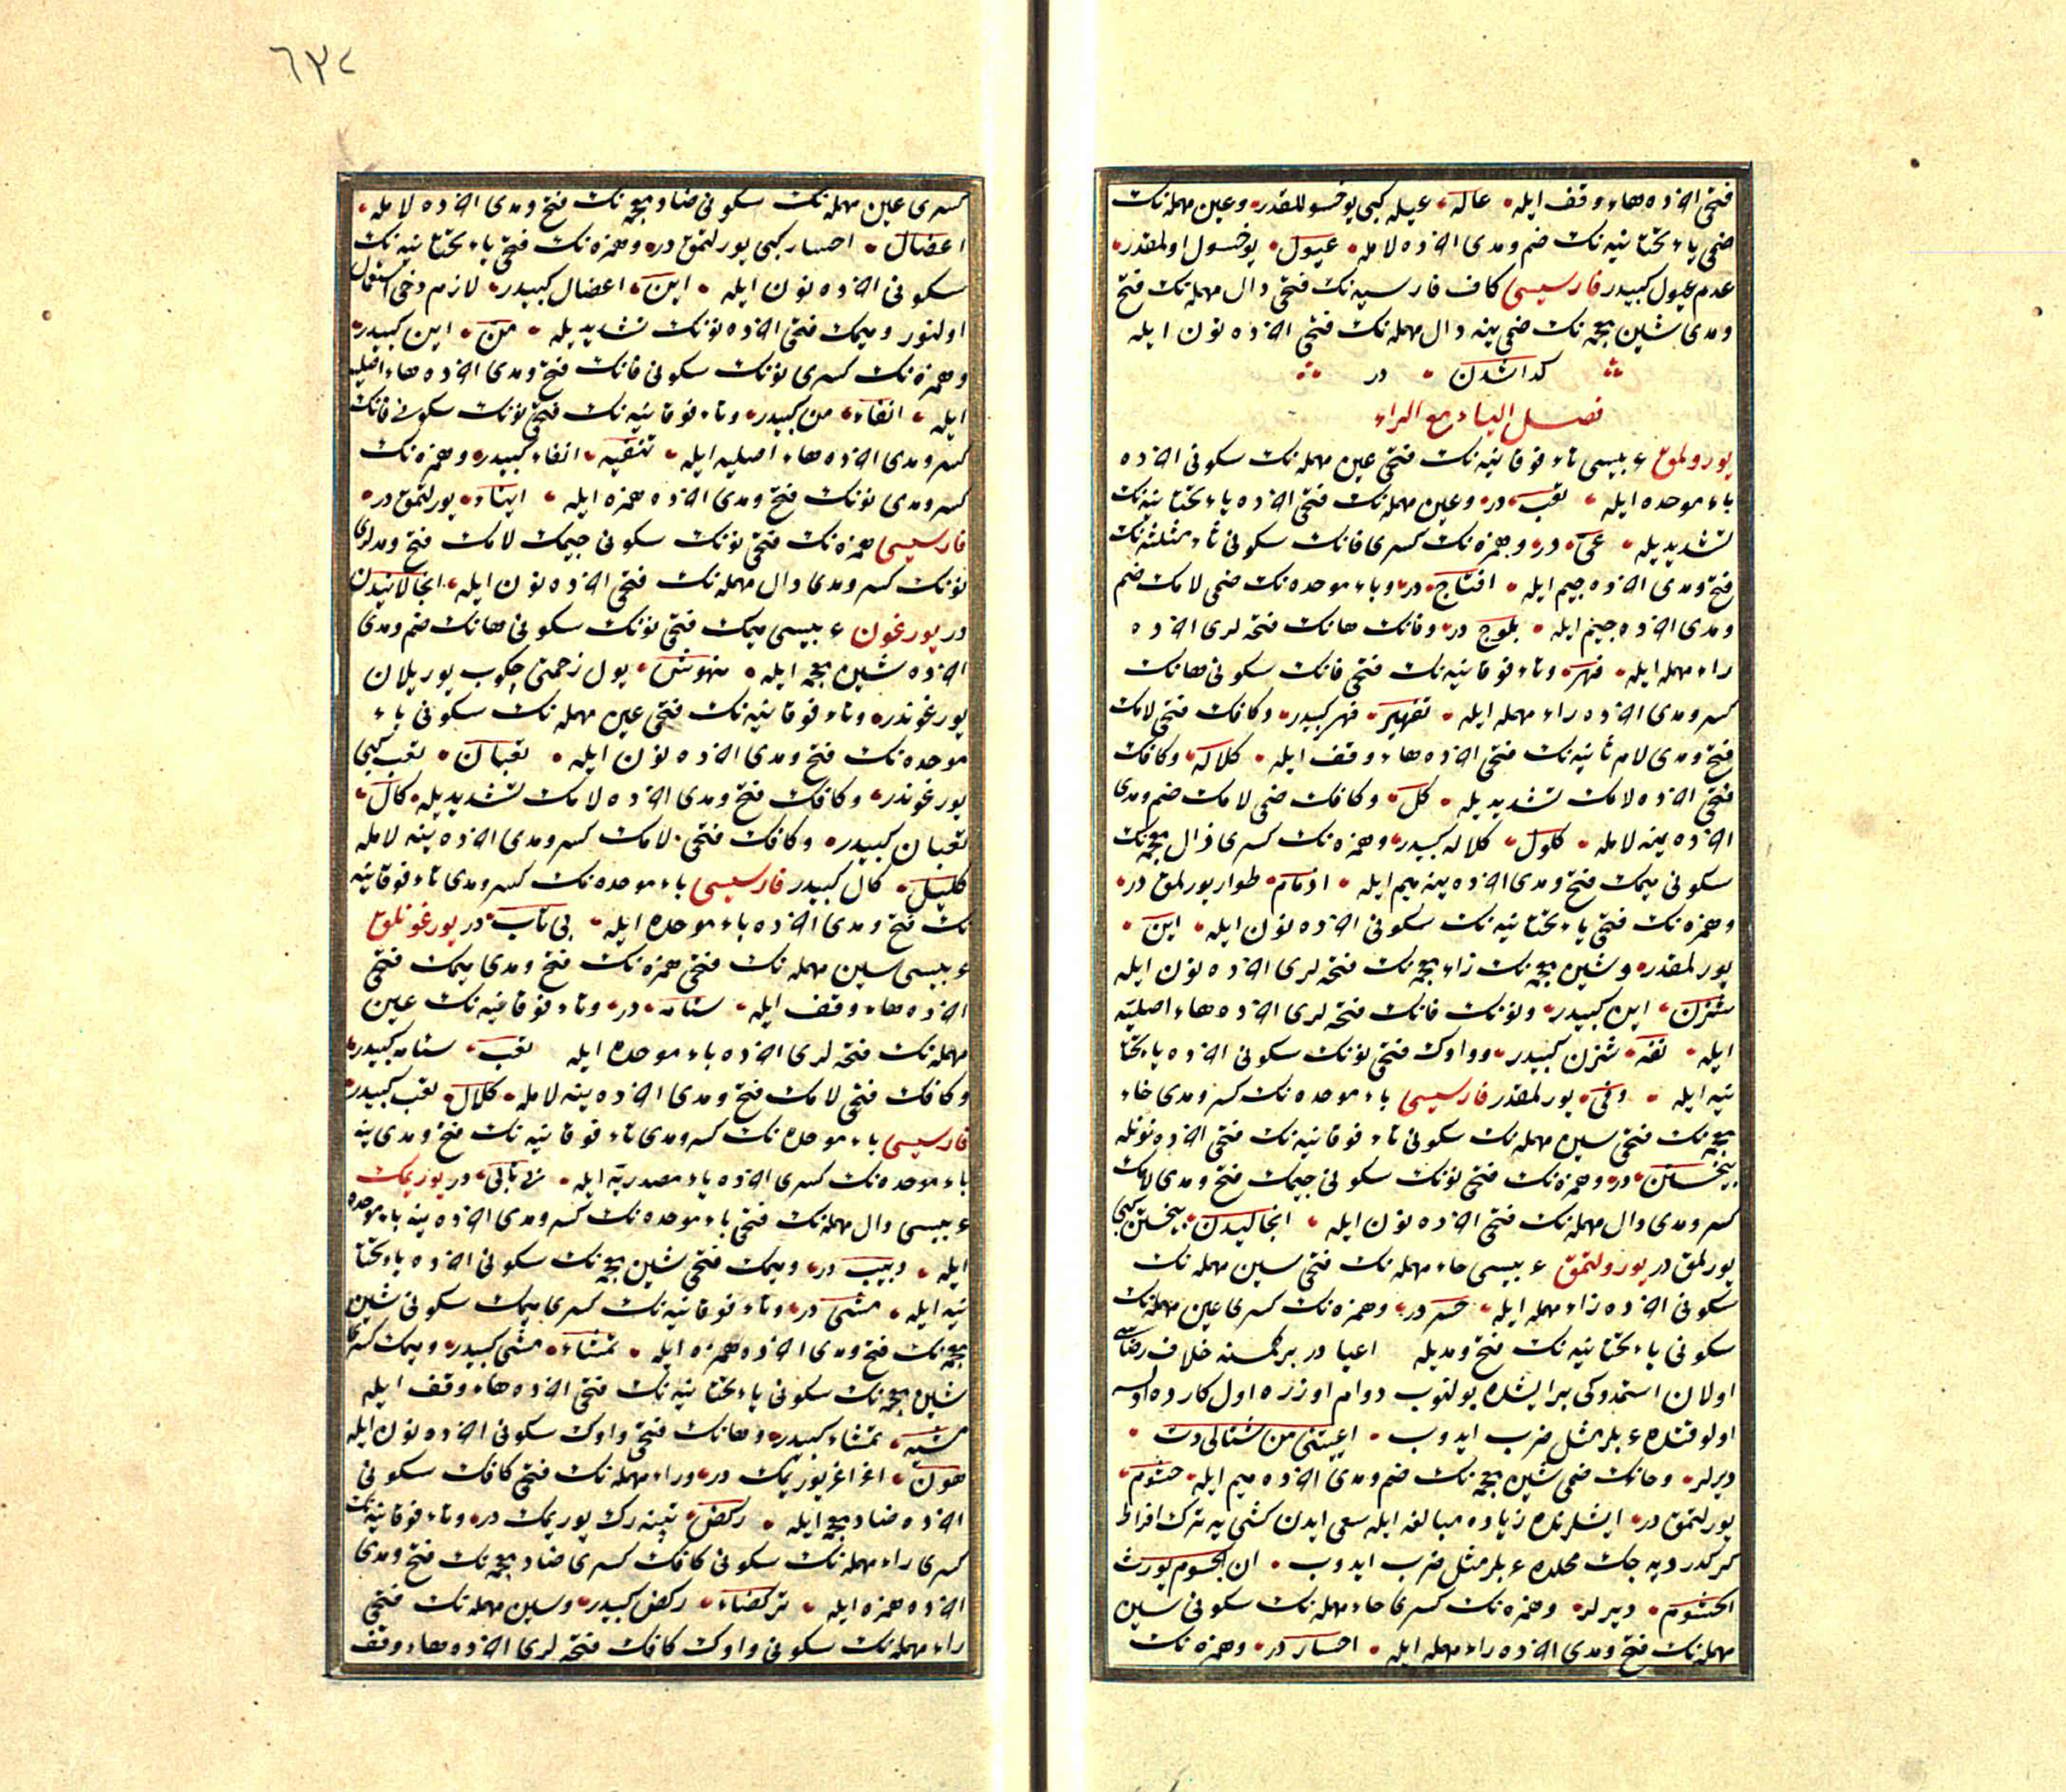 فتحی اخرده هاء وقف ایله عاله عیله کبی یوخسوللقدر وعین مهمله‌نک
ضمی یاء تحتانیه‌نک ضم ومدی اخرده لامله عیول یوخسول اولمقدر
عدم عیول کبیدر فارسیسی کاف فارسیه‌نک فتحی دال مهمله‌نک فتح
ومدی شین معجمه‌نک ضمی ینه دال مهمله‌نک فتحی اخرده نون ایله
کداشدن در
فصل الیاء مع الراء
یورولمق عربیسی تاء فوقانیه‌نک فتحی عین مهمله‌نک سکونی اخرده
باء موحده ایله تعب در وعین مهمله‌نک فتحی اخرده یاء تحتانیه‌نک
تشدیدیله عی در وهمزه‌نک کسری فانک سکونی ثاء مثلثه‌نک
فتح ومدی اخرده جیم ایله افثاج در وباء موحده‌نک ضمی لامک ضم
ومدی اخرده جیم ایله بلوج در وفانک هانک فتحه‌لری اخرده
راء مهمله ایله فهر وتاء فوقانیه‌نک فتحی فانک سکونی هانک
کسر ومدی اخرده راء مهمله ایله تفهیر فهر کبیدر وکافک فتحی لامک
فتح ومدی لام ثانیه‌نک فتحی اخرده هاء وقف ایله کلاله وکافک
فتحی اخرده لامک تشدیدیله کل وکافک ضمی لامک ضم ومدی
اخرده ینه لامله کلول کلاله کبیدر وهمزه‌نک کسری ذال معجمه‌نک
سکونی میمک فتح ومدی اخرده ینه میم ایله اذمام طوار یورلمق در
وهمزه‌نک فتحی یاء تحتانیه‌نک سکونی اخرده نون ایله این
یورلمقدر وشین معجمه‌نک زاء معجمه‌نک فتحه‌لری اخرده نون ایله
شزن این کبیدر ونونک فانک فتحه‌لری اخرده هاء اصلیه
ایله نفه شزن کبیدر وواوک فتحی نونک سکونی اخرده یاء تحتا
نیه ایله ونی یورلمقدر فارسیسی باء موحده‌نک کسر ومدی خاء
معجمه‌نک فتحی سین مهمله‌نک سکونی تاء فوقانیه‌نک فتحی اخرده نونله
بیخستن در وهمزه‌نک فتحی نونک سکونی جیمک فتح ومدی لامک
کسر ومدی دال مهمله‌نک فتحی اخرده نون ایله انجالیدن بیخستن کبی
یورلمق در یورولتمق عربیسی حاء مهمله‌نک فتحی سین مهمله‌نک
سکونی اخرده راء مهمله ایله حسر در وهمزه‌نک کسری عین مهمله‌نک
سکونی یاء تحتانیه‌نک فتح ومدیله اعیا در بر کمسنه خلاف رضاسی
اولان استمدوکی بر ایشده بولنوب دوام اوزره اول کارده اولسه
اولوقتده عربلر مثل ضرب ایدوب اعییتنی من
دیرلر وحانک ضمی شین معجمه‌نک ضم ومدی اخرده میم ایله حشوم
یورلتمق در ایشلرنده زیاده مبالغه ایله سعی ایدن کشی یه ترک افراط
کرکدر دیه جک محلده عربلر مثل ضرب ایدوب ان الجسوم یورث
الحشوم دیرلر وهمزه‌نک کسری حاء مهمله‌نک سکونی سین
مهمله‌نک فتح ومدی اخرده راء مهمله ایله احسار در وهمزه‌نک
کسری عین مهمله‌نک سکونی ضاد معجمه‌نک فتح ومدی اخرده لامله
اعضال احسار کبی یورلتمق در وهمزه‌نک فتحی یاء تحتانیه‌نک
سکونی اخرده نون ایله این اعضال کبیدر لازم دخی استعمال
اولنور ومیمک فتحی اخرده نونک تشدیدیله من این کبیدر
وهمزه‌نک کسری نونک سکونی فانک فتح ومدی اخرده هاء اصلیه
ایله انفاه من کبیدر وتاء فوقانیه‌نک فتحی نونک سکونی فانک
کسر ومدی اخرده هاء اصلیه ایله تنفیه انفاه کبیدر وهمزه‌نک
کسر ومدی نونک فتح ومدی اخرده همزه ایله ایناء یورلتمق در
فارسیسی همزه‌نک فتحی نونک سکونی جیمک لامک فتح ومدلری
نونک کسر ومدی دال مهمله‌نک فتحی اخرده نون ایله انجالانیدن
در یورغون عربیسی میمک فتحی نونک سکونی هانک ضم ومدی
اخرده شین معجمه ایله منهوش یول زحمتی چکوب یوریلان
یورغوندر وتاء فوقانیه‌نک فتحی عین مهمله‌نک سکونی باء
موحده‌نک فتح ومدی اخرده نون ایله تعبان تعب کبی
یورغوندر وکافک فتح ومدی اخرده لامک تشدیدیله کال
تعبان کبیدر وکافک فتحی لامک کسر ومدی اخرده ینه لامله
کلیل کال کبیدر فارسیسی باء موحده‌نک کسر ومدی تاء فوقانیه
نک فتح ومدی اخرده باء موحده ایله بی تاب در یورغونلق
عربیسی سین مهمله‌نک فتحی همزه‌نک فتح ومدی میمک فتحی
اخرده هاء وقف ایله سئامه در وتاء فوقانیه‌نک عین
مهمله‌نک فتحه‌لری اخرده باء موحده ایله تعب سئامه کبیدر
وکافک فتحی لامک فتح ومدی اخرده ینه لامله کلال تعب کبیدر
فارسیسی باء موحده‌نک کسر ومدی تاء فوقانیه‌نک فتح ومدی ینه
باء موحده‌نک کسری اخرده یاء مصدریه ایله بی تابی در یوریمک
عربیسی دال مهمله‌نک فتحی باء موحده‌نک کسر ومدی اخرده ینه باء موحده
ایله دبیب در ومیمک فتحی شین معجمه‌نک سکونی اخرده یاء تحتا
نیه ایله مشی در وتاء فوقانیه‌نک کسری میمک سکونی شین
معجمه‌نک فتح ومدی اخرده همزه ایله تمشاء مشی کبیدر ومیمک کسری
شین معجمه‌نک سکونی یاء تحتانیه‌نک فتحی اخرده هاء وقف ایله
مشیه تمشاء کبیدر وهانک فتحی واوک سکونی اخرده نون ایله
هون اغر اغر یوریمک در وراء مهمله‌نک فتحی کافک سکونی
اخرده ضاد معجمه ایله رکض تپنه‌رک یوریمک در وتاء فوقانیه‌نک
کسری راء مهمله‌نک سکونی کافک کسری ضاد معجمه‌نک فتح ومدی
اخرده همزه ایله ترکضاء رکض کبیدر وسین مهمله‌نک فتحی
راء مهمله‌نک سکونی واوک کافک فتحه‌لری اخرده هاء وقف